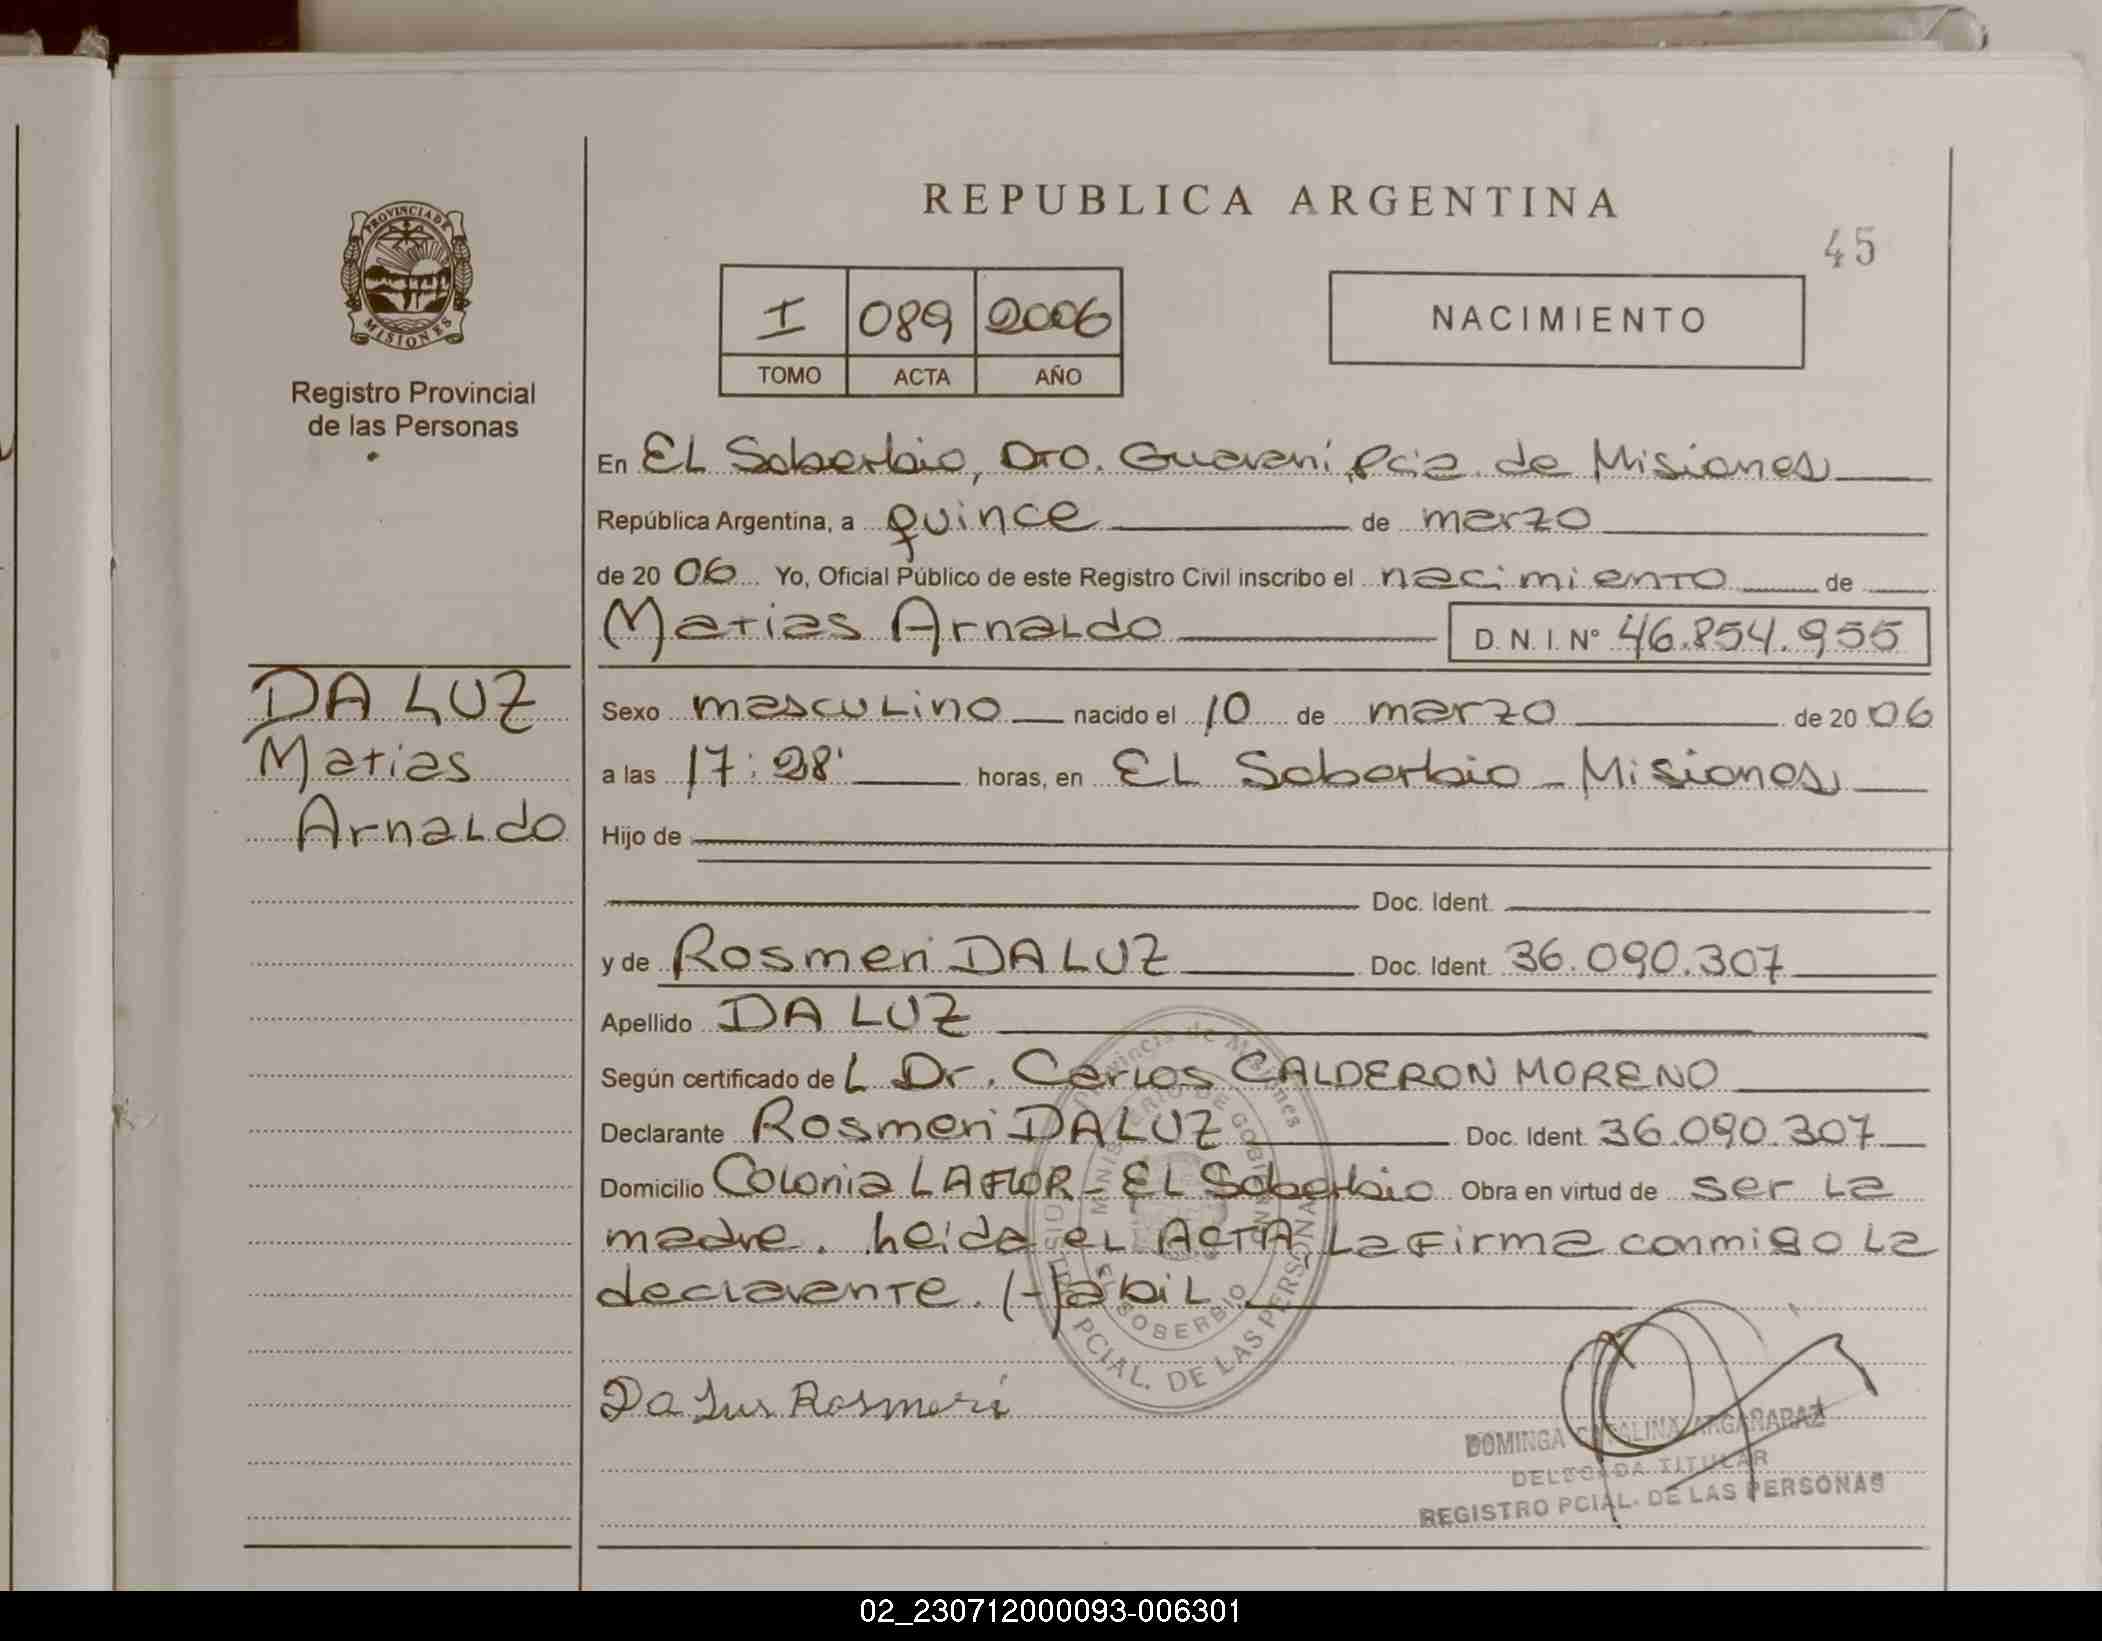 REPUBLICA ARGENTINA
45
PROVINCIA DE
MISIONES
Registro Provincial
de las Personas
I 089 2006
TOMO ACTA AÑO
NACIMIENTO
En EL Soberbio, Dto. Guaraní, Pcia. de Misiones
República Argentina, a quince de marzo
de 2006 Yo, Oficial Público de este Registro Civil inscribo el nacimiento de
Matias Arnaldo D. N. I. Nº 46.854.955
DA LUZ
Matias
Arnaldo
Sexo masculino nacido el 10 de marzo de 2006
a las 17:28' horas, en EL Soberbio - Misiones
Hijo de
Doc. Ident.
y de Rosmeri DA LUZ Doc. Ident. 36.090.307
Apellido DA LUZ
Según certificado deL Dr. Carlos CALDERON MORENO
Declarante Rosmeri DA LUZ Doc. Ident. 36.090.307
Domicilio Colonia LA FLOR - EL Soberbio Obra en virtud de ser La
madre. Leida eL ACTA, La firma conmigo La
declarante. Habil
Provincia de Misiones
MINISTERIO DE GOBIERNO
SOBERBIO
PCIAL. DE LAS PERSONAS
Da Lus Rosmeri
DOMINGA CATALINA ARGAÑARAZ
DELEGADA TITULAR
REGISTRO PCIAL. DE LAS PERSONAS
02_230712000093-006301